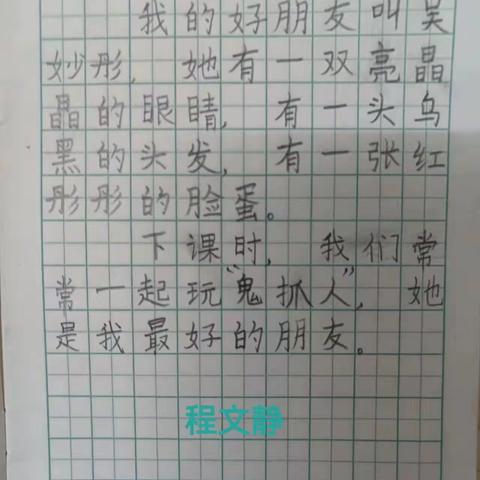 我的好朋友叫吴
妙彤，她有一双亮晶
晶的眼睛，有一头乌
黑的头发，有一张红
彤彤的脸蛋。
下课时，我们常
常一起玩“鬼抓人”，她
是我最好的朋友。
程文静